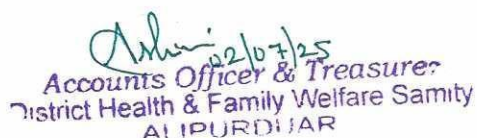 02/07/25
Accounts Officer & Treasurer
District Health & Family Welfare Samity
ALIPURDUAR